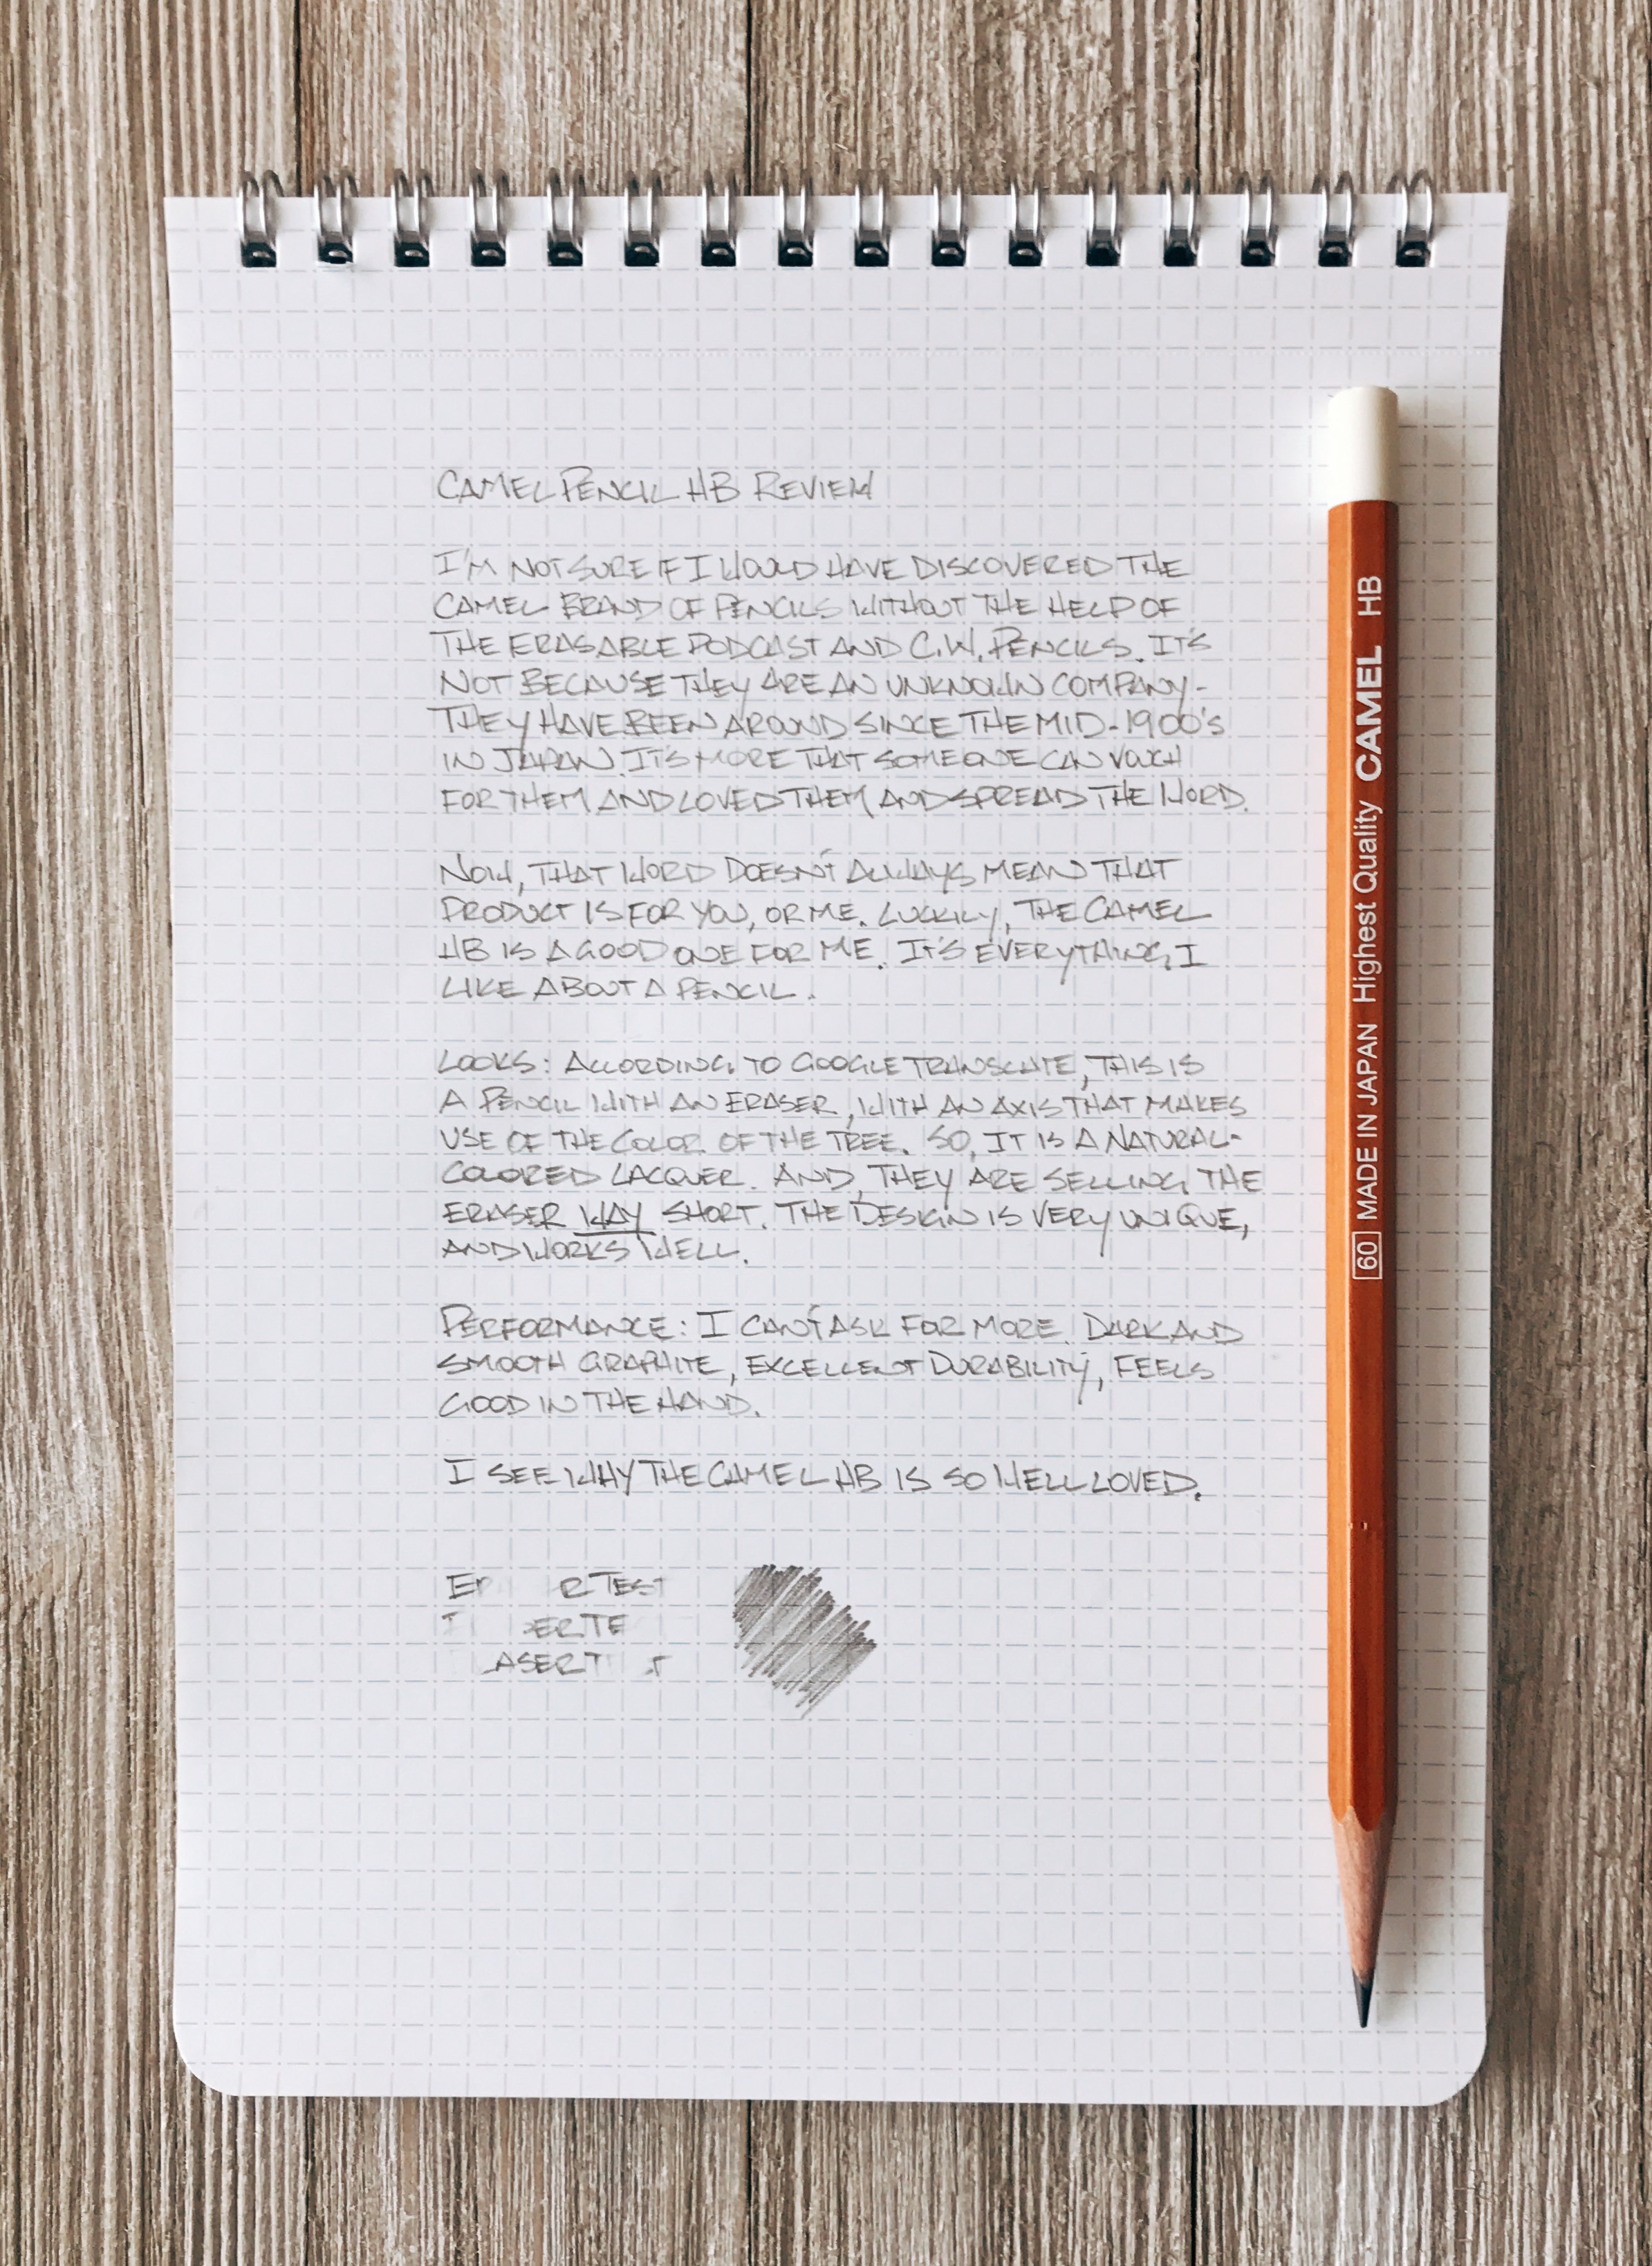 CAMEL PENCIL HB REVIEW
I'M NOT SURE IF I WOULD HAVE DISCOVERED THE
CAMEL BRAND OF PENCILS WITHOUT THE HELP OF
THE ERASABLE PODCAST AND C.W. PENCILS. IT'S
NOT BECAUSE THEY ARE AN UNKNOWN COMPANY-
THEY HAVE BEEN AROUND SINCE THE MID-1900'S
IN JAPAN. IT'S MORE THAT SOMEONE CAN VOUCH
FOR THEM AND LOVED THEM AND SPREAD THE WORD.
NOW, THAT WORD DOESN'T ALWAYS MEAN THAT
PRODUCT IS FOR YOU, OR ME. LUCKILY, THE CAMEL
HB IS A GOOD ONE FOR ME. IT'S EVERYTHING I
LIKE ABOUT A PENCIL.
LOOKS: ACCORDING TO GOOGLE TRANSLATE, THIS IS
A PENCIL WITH AN ERASER, WITH AN AXIS THAT MAKES
USE OF THE COLOR OF THE TREE. SO, IT IS A NATURAL-
COLORED LACQUER. AND, THEY ARE SELLING THE
ERASER WAY SHORT. THE DESIGN IS VERY UNIQUE,
AND WORKS WELL.
PERFORMANCE: I CAN'T ASK FOR MORE. DARK AND
SMOOTH GRAPHITE, EXCELLENT DURABILITY, FEELS
GOOD IN THE HAND.
I SEE WHY THE CAMEL HB IS SO WELL LOVED.
ER R TEST
SER TE
ASER T T
60 MADE IN JAPAN Highest Quality CAMEL HB